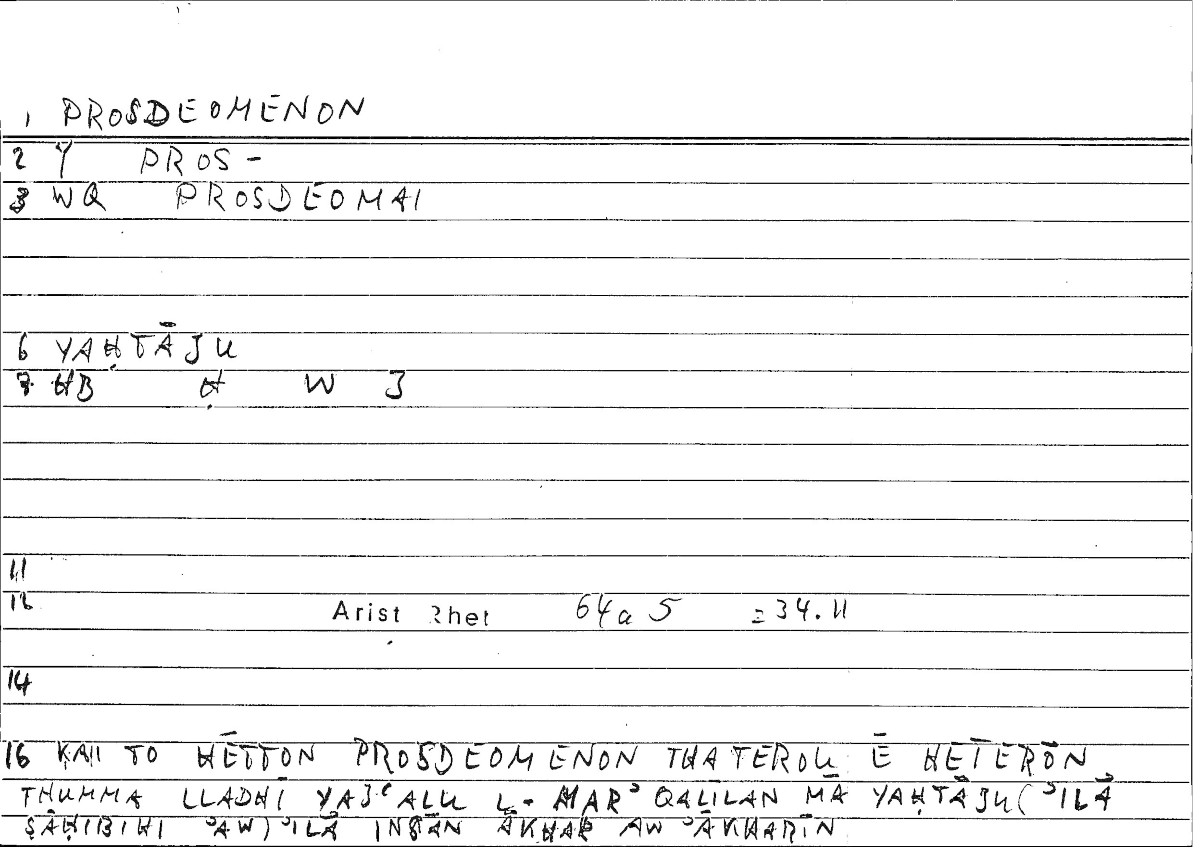 1 PROSDEOMENON
2 Y PROS-
3 WQ PROSDEOMAI
6 YAḤTĀJU
7 HB Ḥ W J
11
12 Arist Rhet 64a 5 = 34.11
14
16 KAI TO HĒTTON PROSDEOMENON THATEROU Ē HETERŌN
THUMMA LLADHĪ YAJʿALU L-MARʾ QALĪLAN MĀ YAḤTĀJU (ʾILĀ
ṢĀḤIBIHI ʾAW) ʾILĀ INSĀN ĀKHAR AW ʾĀKHARĪN